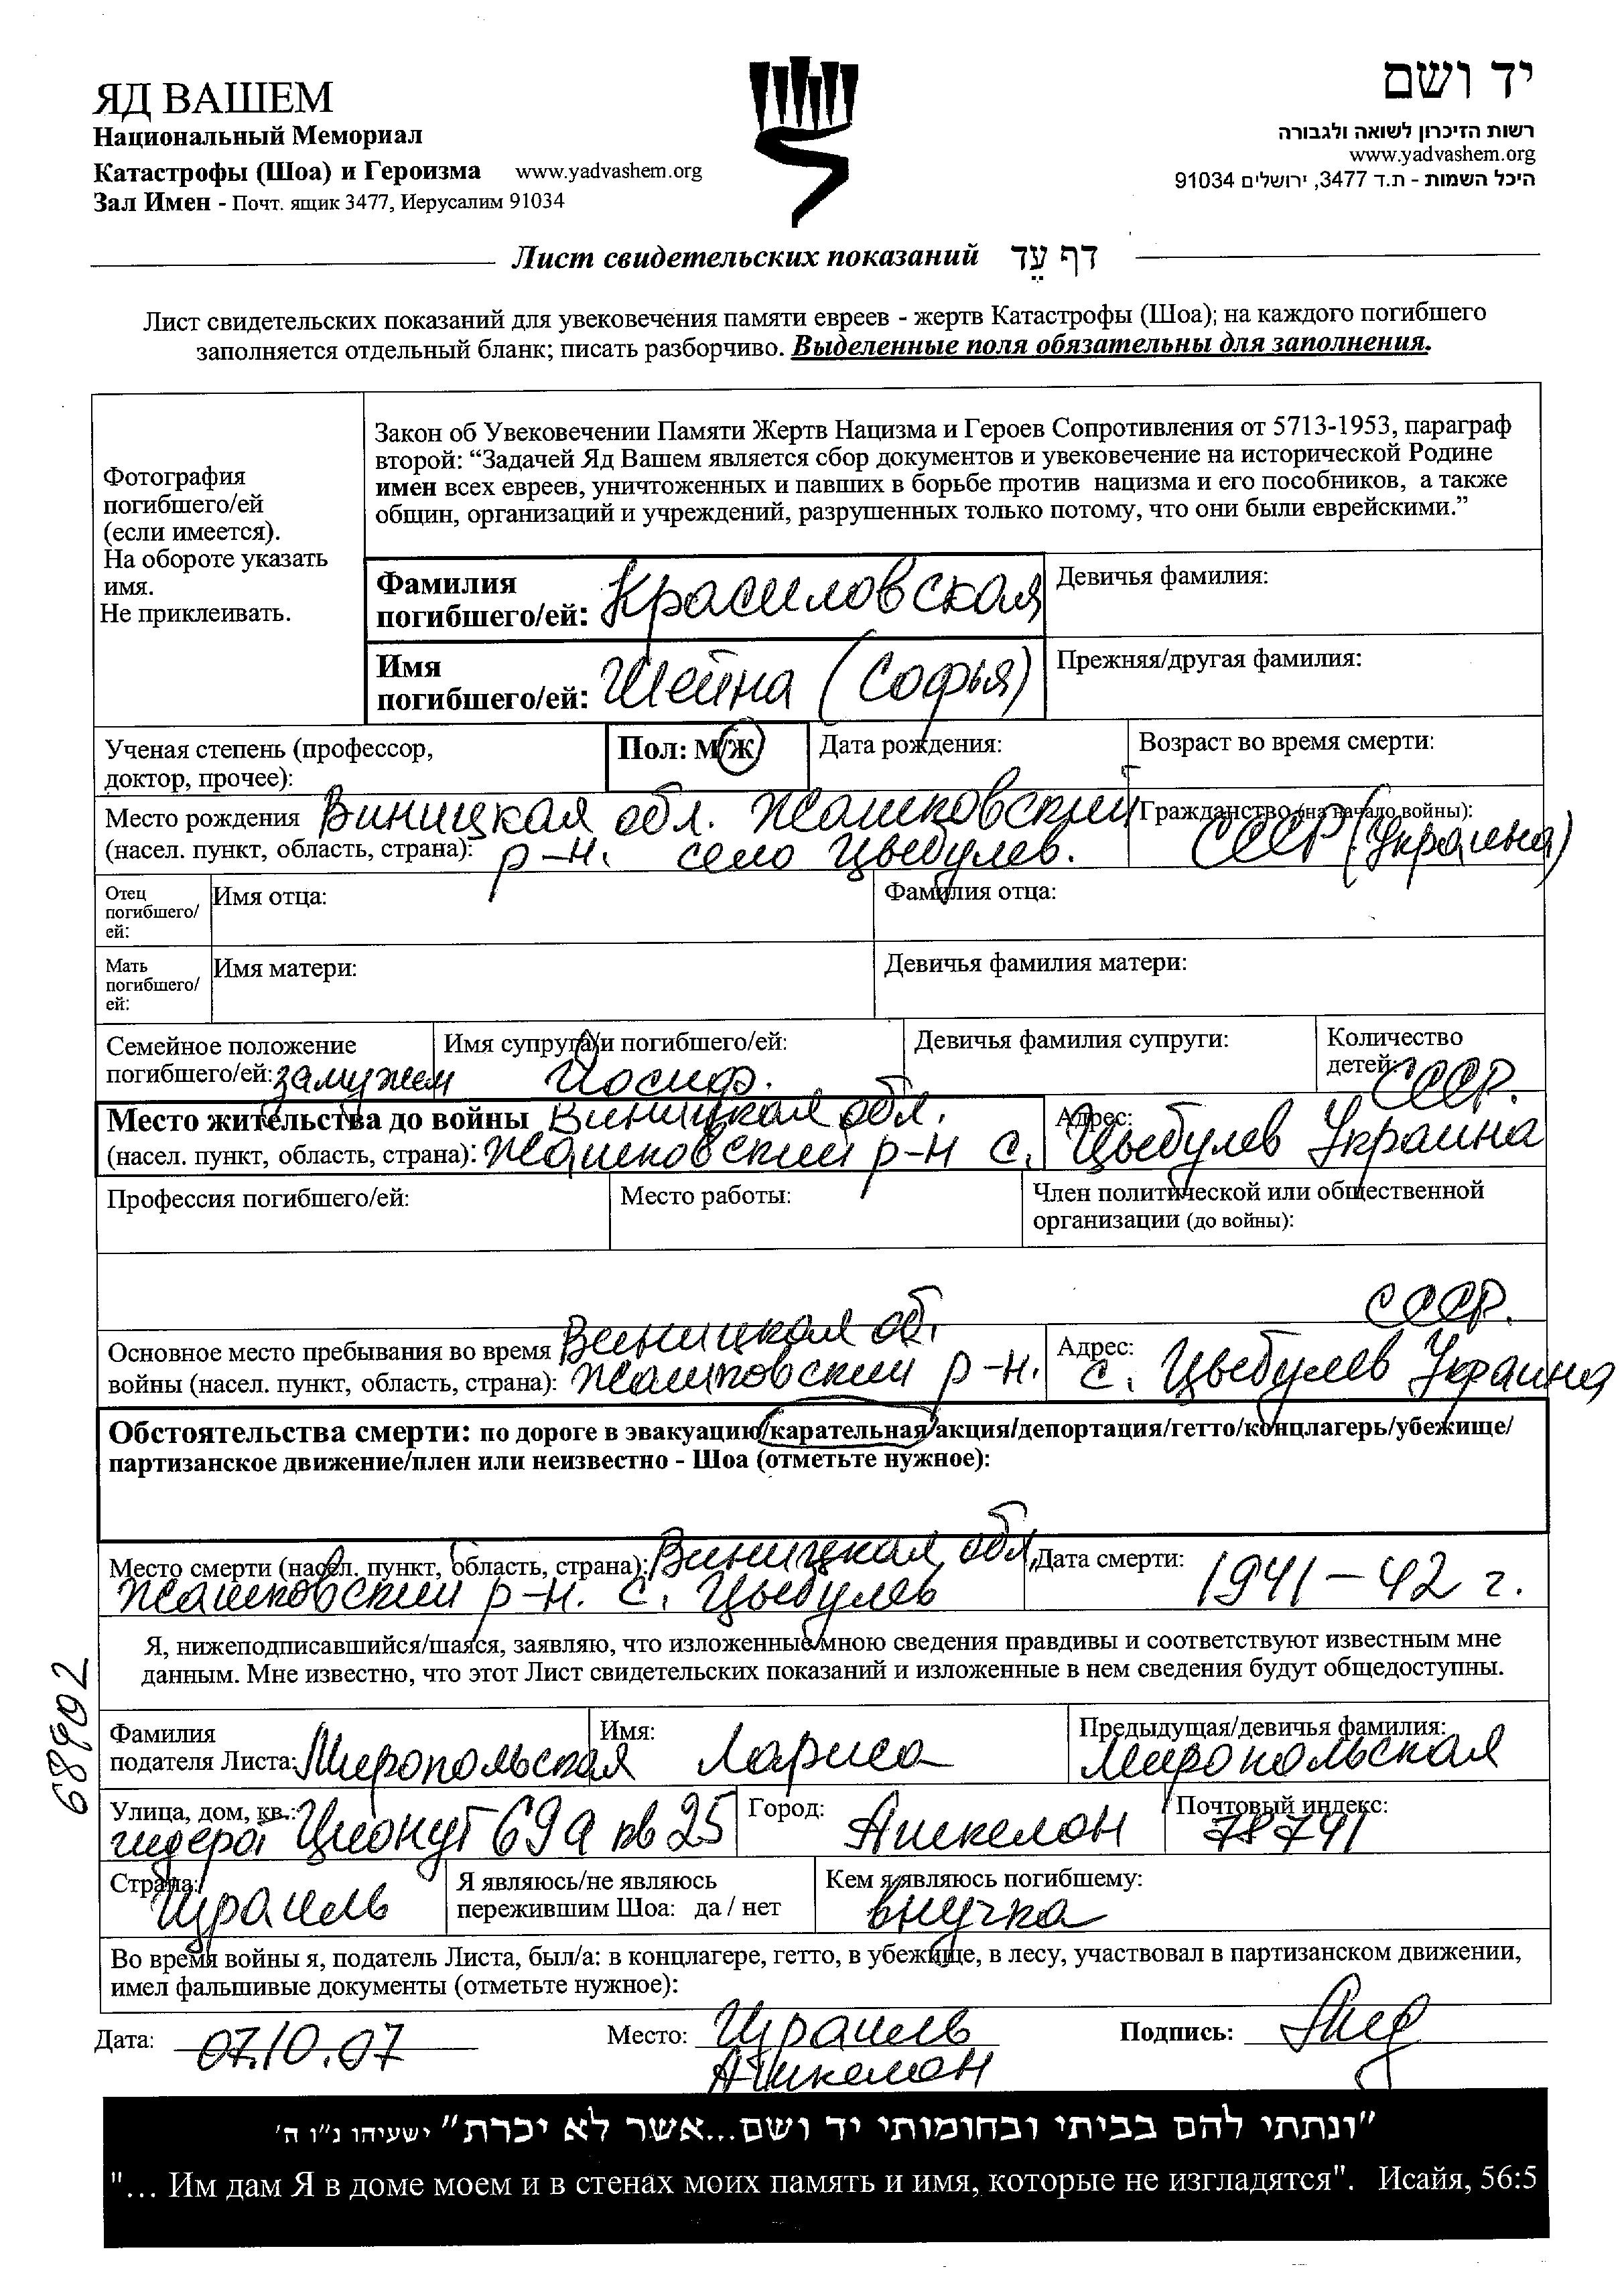 ЯД ВАШЕМ
Национальный Мемориал
Катастрофы (Шоа) и Героизма www.yadvashem.org
Зал Имен - Почт. ящик 3477, Иерусалим 91034
יד ושם
רשות הזיכרון לשואה ולגבורה
www.yadvashem.org
היכל השמות - ת.ד 3477, ירושלים 91034
Лист свидетельских показаний דף עֵד
Лист свидетельских показаний для увековечения памяти евреев - жертв Катастрофы (Шоа); на каждого погибшего
заполняется отдельный бланк; писать разборчиво. Выделенные поля обязательны для заполнения.
Фотография
погибшего/ей
(если имеется).
На обороте указать
имя.
Не приклеивать.
Закон об Увековечении Памяти Жертв Нацизма и Героев Сопротивления от 5713-1953, параграф
второй: “Задачей Яд Вашем является сбор документов и увековечение на исторической Родине
имен всех евреев, уничтоженных и павших в борьбе против нацизма и его пособников, а также
общин, организаций и учреждений, разрушенных только потому, что они были еврейскими.”
Фамилия
погибшего/ей: Красиловская
Девичья фамилия:
Имя
погибшего/ей: Шейна (Софья)
Прежняя/другая фамилия:
Ученая степень (профессор,
доктор, прочее):
Пол: М/Ж
Дата рождения:
Возраст во время смерти:
Место рождения Виницкая обл. Жашковский
(насел. пункт, область, страна): р-н. село Цыбулев.
Гражданство (на начало войны):
СССР (Украина)
Отец
погибшего/
ей:
Имя отца:
Фамилия отца:
Мать
погибшего/
ей:
Имя матери:
Девичья фамилия матери:
Семейное положение
погибшего/ей: замужем
Имя супруга/и погибшего/ей:
Йосиф.
Девичья фамилия супруги:
Количество
детей:
Место жительства до войны Виницкая обл.
(насел. пункт, область, страна): Жашковский р-н с.
СССР.
Адрес:
Цыбулев Украина
Профессия погибшего/ей:
Место работы:
Член политической или общественной
организации (до войны):
Основное место пребывания во время Виницкая об.
войны (насел. пункт, область, страна): Жашковский р-н.
СССР.
Адрес:
с. Цыбулев Украина
Обстоятельства смерти: по дороге в эвакуацию/карательная акция/депортация/гетто/концлагерь/убежище/
партизанское движение/плен или неизвестно - Шоа (отметьте нужное):
Место смерти (насел. пункт, область, страна): Виницкая обл,
Жашковский р-н. с. Цыбулев
Дата смерти:
1941-42 г.
Я, нижеподписавшийся/шаяся, заявляю, что изложенные мною сведения правдивы и соответствуют известным мне
данным. Мне известно, что этот Лист свидетельских показаний и изложенные в нем сведения будут общедоступны.
Фамилия
податель Листа: Миропольская
Имя:
Лариса
Предыдущая/девичья фамилия:
Миропольская
Улица, дом, кв.:
Ционут 69а кв 25
Город:
Ашкелон
Почтовый индекс:
78741
Страна:
Израиль
Я являюсь/не являюсь
пережившим Шоа: да / нет
Кем я являюсь погибшему:
внучка
Во время войны я, податель Листа, был/а: в концлагере, гетто, в убежище, в лесу, участвовал в партизанском движении,
имел фальшивые документы (отметьте нужное):
Дата: 07.10.07
Место: Израиль
Ашкелон
Подпись:
"ונתתי להם בביתי ובחומותי יד ושם...אשר לא יכרת" ישעיהו נ"ו ה'
"... Им дам Я в доме моем и в стенах моих память и имя, которые не изгладятся". Исайя, 56:5